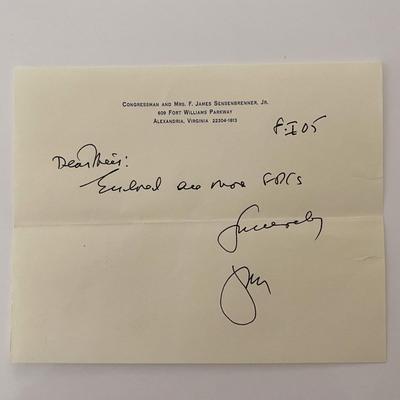 CONGRESSMAN AND MRS. F. JAMES SENSENBRENNER, JR.
609 FORT WILLIAMS PARKWAY
ALEXANDRIA, VIRGINIA 22304-1813
8-I-05
Dear
Enclosed are more FDCs
Sincerely
Jim